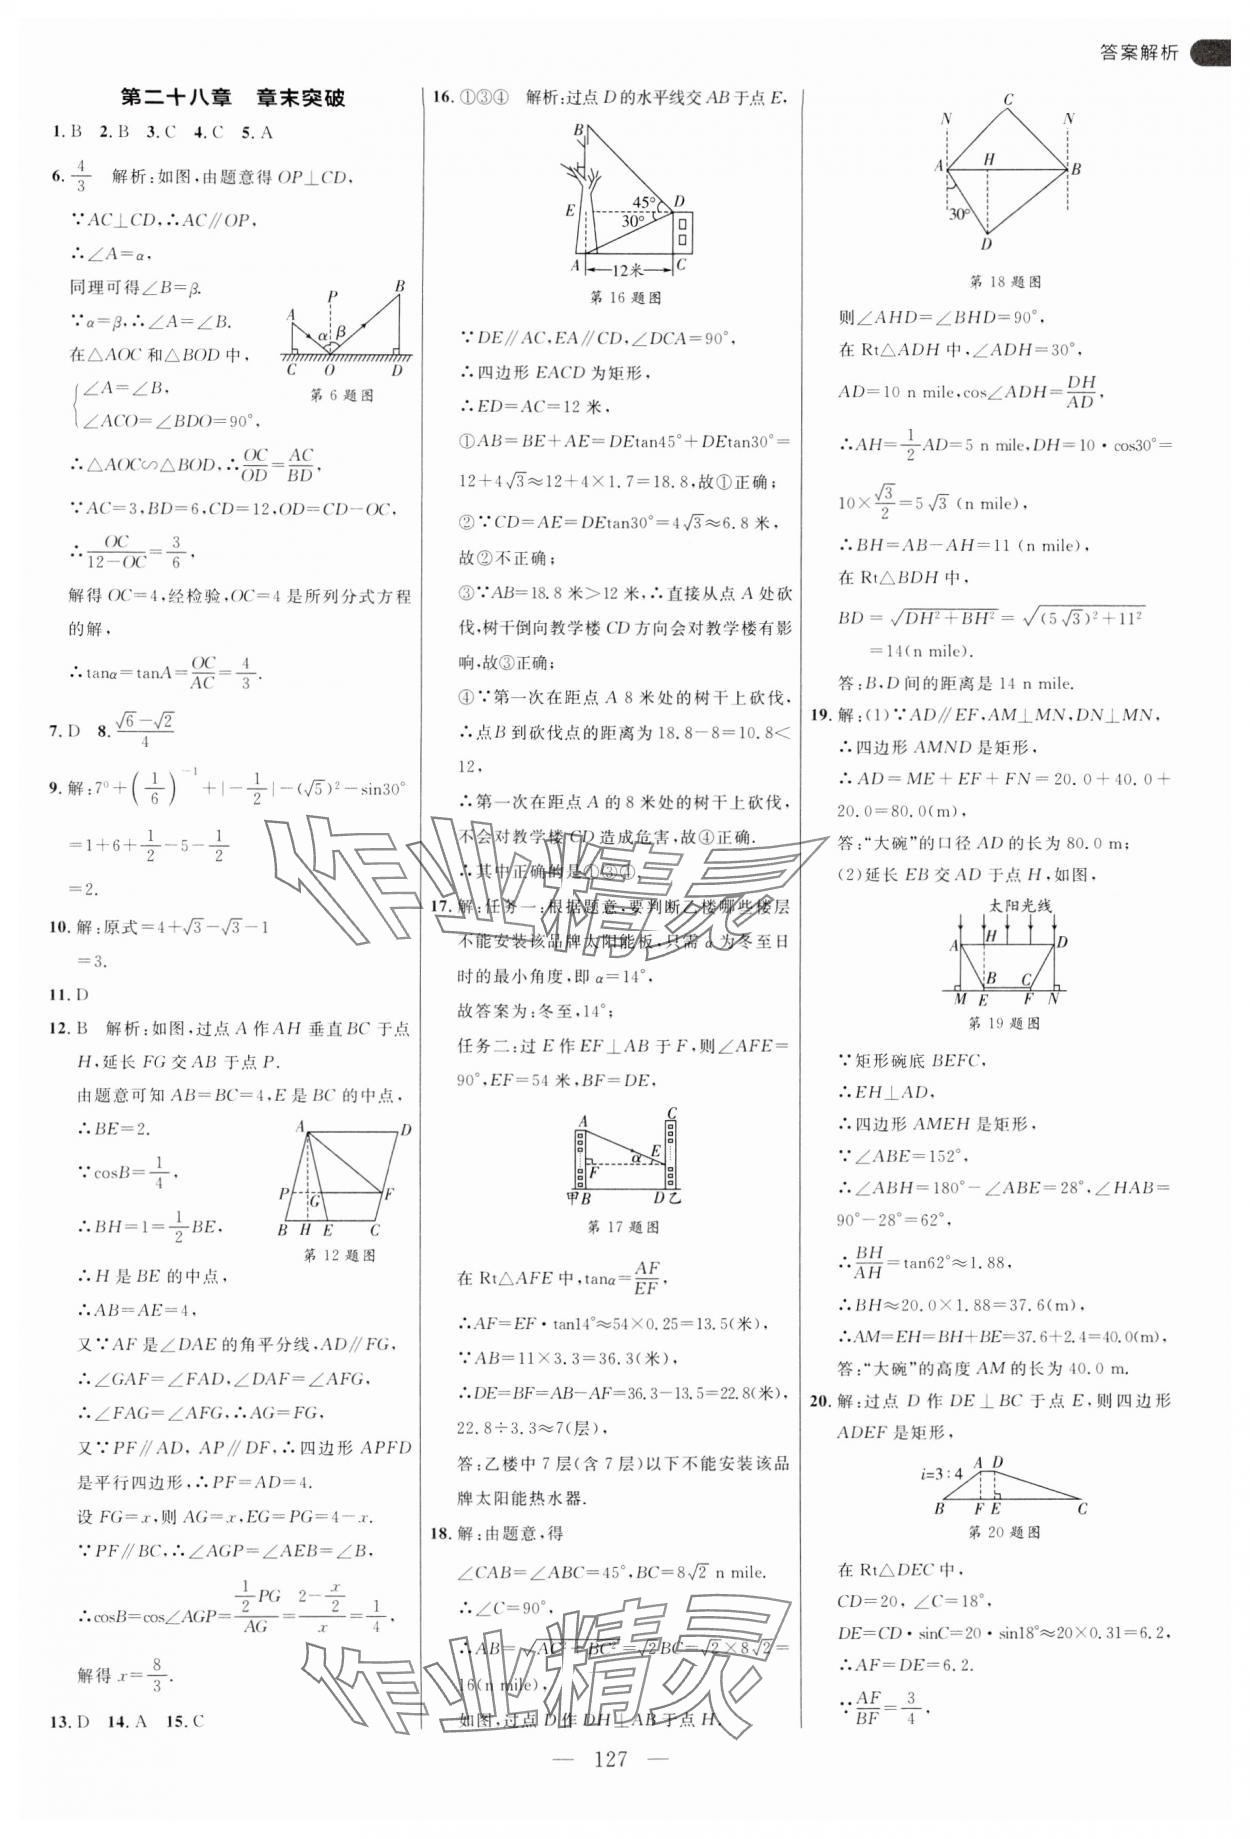 答案解析
第二十八章　章末突破
1. B　2. B　3. C　4. C　5. A
6. 4/3　解析:如图,由题意得 OP⊥CD,
∵AC⊥CD,∴AC∥OP,
∴∠A=α,
同理可得∠B=β.
∵α=β,∴∠A=∠B.
在△AOC 和△BOD 中,
{∠A=∠B,
∠ACO=∠BDO=90°,
∴△AOC∽△BOD,∴OC/OD=AC/BD,
P
B
A
α β
C O D
第 6 题图
∵AC=3,BD=6,CD=12,OD=CD-OC,
∴OC/(12-OC)=3/6,
解得 OC=4,经检验,OC=4 是所列分式方程
的解,
∴tanα=tanA=OC/AC=4/3.
7. D　8. (√6-√2)/4
9. 解:7⁰+(1/6)⁻¹+|-1/2|-(√5)²-sin30°
=1+6+1/2-5-1/2
=2.
10. 解:原式=4+√3-√3-1
=3.
11. D
12. B　解析:如图,过点 A 作 AH 垂直 BC 于点
H,延长 FG 交 AB 于点 P.
由题意可知 AB=BC=4,E 是 BC 的中点,
∴BE=2.
∵cosB=1/4,
∴BH=1=1/2BE,
A D
P G F
B H E C
第 12 题图
∴H 是 BE 的中点,
∴AB=AE=4,
又∵AF 是∠DAE 的角平分线,AD∥FG,
∴∠GAF=∠FAD,∠DAF=∠AFG,
∴∠FAG=∠AFG,∴AG=FG,
又∵PF∥AD, AP∥DF,∴四边形 APFD
是平行四边形,∴PF=AD=4.
设 FG=x,则 AG=x,EG=PG=4-x.
∵PF∥BC,∴∠AGP=∠AEB=∠B,
∴cosB=cos∠AGP=(1/2PG)/AG=(2-x/2)/x=1/4,
解得 x=8/3.
13. D　14. A　15. C
16. ①③④　解析:过点 D 的水平线交 AB 于点 E,
B
E 45° D
30°
A 12米 C
第 16 题图
∵DE∥AC,EA∥CD,∠DCA=90°,
∴四边形 EACD 为矩形,
∴ED=AC=12 米,
①AB=BE+AE=DEtan45°+DEtan30°=
12+4√3≈12+4×1.7=18.8,故①正确;
②∵CD=AE=DEtan30°=4√3≈6.8 米,
故②不正确;
③∵AB=18.8 米>12 米,∴直接从点 A 处砍
伐,树干倒向教学楼 CD 方向会对教学楼有影
响,故③正确;
④∵第一次在距点 A 8 米处的树干上砍伐,
∴点B 到砍伐点的距离为 18.8-8=10.8<
12,
∴第一次在距点 A 的 8 米处的树干上砍伐,
不会对教学楼 CD 造成危害,故④正确.
∴其中正确的是①③④.
17. 解:任务一:根据题意,要判断乙楼哪些楼层
不能安装该品牌太阳能板,只需 α 为冬至日
时的最小角度,即 α=14°,
故答案为:冬至,14°;
任务二:过 E 作 EF⊥AB 于 F,则∠AFE=
90°,EF=54 米,BF=DE,
A C
F α E
甲 B D 乙
第 17 题图
在 Rt△AFE 中,tanα=AF/EF,
∴AF=EF·tan14°≈54×0.25=13.5(米),
∵AB=11×3.3=36.3(米),
∴DE=BF=AB-AF=36.3-13.5=22.8(米),
22.8÷3.3≈7(层),
答:乙楼中 7 层(含 7 层)以下不能安装该品
牌太阳能热水器.
18. 解:由题意,得
∠CAB=∠ABC=45°,BC=8√2 n mile.
∴∠C=90°,
∴AB=√(AC²+BC²)=√2BC=√2×8√2=
16(n mile),
如图,过点 D 作 DH⊥AB 于点 H.
C
N N
A H B
30°
D
第 18 题图
则∠AHD=∠BHD=90°,
在 Rt△ADH 中,∠ADH=30°,
AD=10 n mile,cos∠ADH=DH/AD,
∴AH=1/2AD=5 n mile,DH=10·cos30°=
10×√3/2=5√3 (n mile),
∴BH=AB-AH=11 (n mile),
在 Rt△BDH 中,
BD=√(DH²+BH²)=√((5√3)²+11²)
=14(n mile).
答:B,D 间的距离是 14 n mile.
19. 解:(1)∵AD∥EF,AM⊥MN,DN⊥MN,
∴四边形 AMND 是矩形,
∴AD=ME+EF+FN=20.0+40.0+
20.0=80.0(m),
答:“大碗”的口径 AD 的长为 80.0 m;
(2)延长 EB 交 AD 于点 H,如图,
太阳光线
A H D
B C
M E F N
第 19 题图
∵矩形碗底 BEFC,
∴EH⊥AD,
∴四边形 AMEH 是矩形,
∵∠ABE=152°,
∴∠ABH=180°-∠ABE=28°,∠HAB=
90°-28°=62°,
∴BH/AH=tan62°≈1.88,
∴BH≈20.0×1.88=37.6(m),
∴AM=EH=BH+BE=37.6+2.4=40.0(m),
答:“大碗”的高度 AM 的长为 40.0 m.
20. 解:过点 D 作 DE⊥BC 于点 E,则四边形
ADEF 是矩形,
i=3:4 A D
B F E C
第 20 题图
在 Rt△DEC 中,
CD=20, ∠C=18°,
DE=CD·sinC=20·sin18°≈20×0.31=6.2,
∴AF=DE=6.2.
∵AF/BF=3/4,
作业精灵
作业精灵
— 127 —